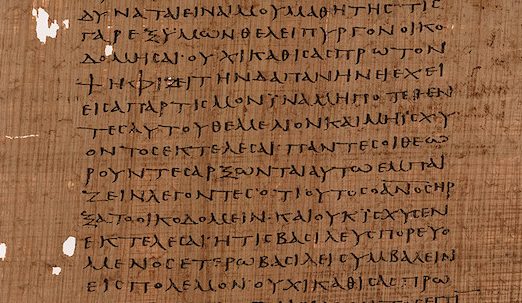 ΔΥΝΑΤΑΙΕΙΝΑΙΜΟΥΜΑΘΗΤΗϹ ΤΙϹ
ΓΑΡΕΞΥΜΩΝΘΕΛΕΙΠΥΡΓΟΝΟΙΚΟ
ΔΟΜΗϹΑΙΟΥΧΙΚΑΘΙϹΑϹΠΡΩΤΟΝ
ΨΗΦΙΖΕΙΤΗΝΔΑΠΑΝΗΝΕΙΕΧΕΙ
ΕΙϹΑΠΑΡΤΙϹΜΟΝΙΝΑΜΗΠΟΤΕΘΕΝ
ΤΕϹΑΥΤΟΥΘΕΜΕΛΙΟΝΚΑΙΜΗΙϹΧΥ
ΟΝΤΟϹΕΚΤΕΛΕϹΑΙΠΑΝΤΕϹΟΙΘΕΩ
ΡΟΥΝΤΕϹΑΡΞΩΝΤΑΙΑΥΤΩΕΜΠΑΙ
ΖΕΙΝΛΕΓΟΝΤΕϹΟΤΙΟΥΤΟϹΟΑΝΟϹΗΡ
ΞΑΤΟΟΙΚΟΔΟΜΕΙΝ·ΚΑΙΟΥΚΙϹΧΥϹΕΝ
ΕΚΤΕΛΕϹΑΙ·ΗΤΙϹΒΑϹΙΛΕΥϹΠΟΡΕΥΟ
ΜΕΝΟϹΕΤΕΡΩΒΑϹΙΛΕΙϹΥΜΒΑΛΕΙΝ
ΕΙϹΠΟΛΕΜΟΝ·ΟΥΧΙΚΑΘΙϹΑϹΠΡΩ